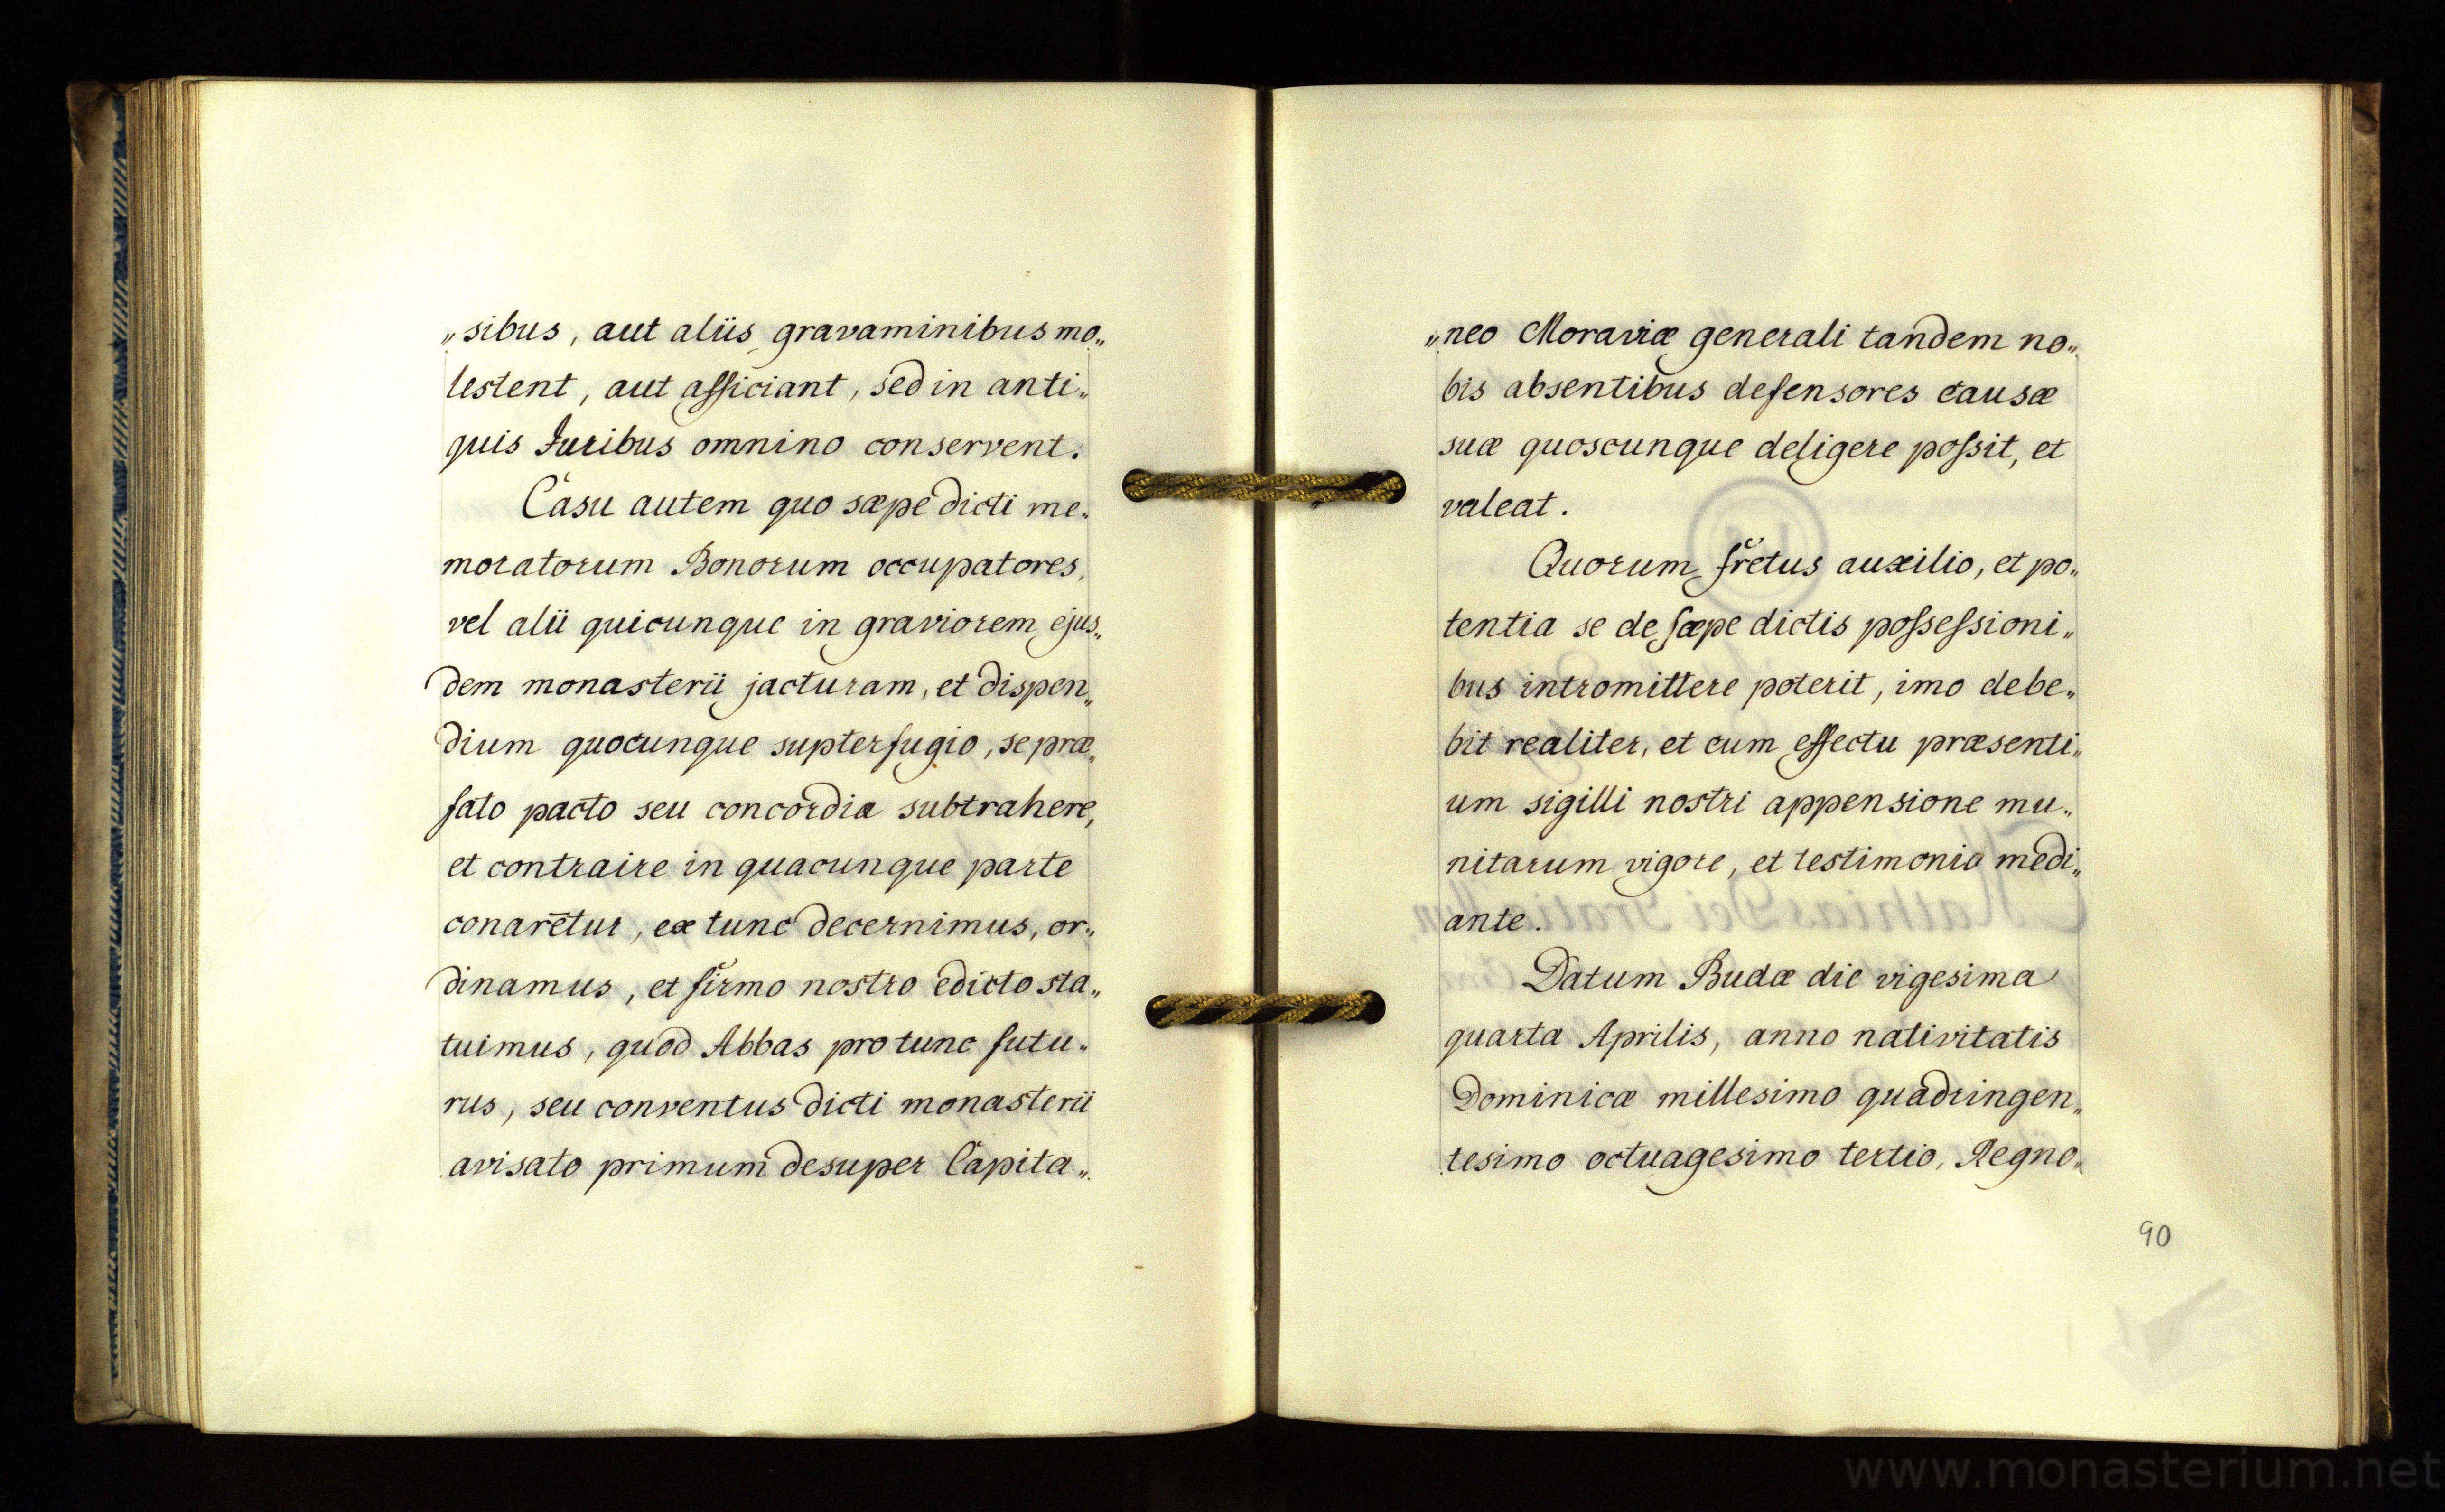 „sibus, aut aliis gravaminibus mo„
lestent, aut afficiant, sed in anti„
quis Juribus omnino conservent.
Casu autem quo sæpe dicti me„
moratorum Bonorum occupatores,
vel alii quicunque in graviorem ejus„
dem monasterii jacturam, et dispen„
dium quocunque supterfugio, se præ„
fato pacto seu concordia subtrahere,
et contraire in quacunque parte
conarētur, ex tunc decernimus, or„
dinamus, et firmo nostro edicto sta„
tuimus, quod Abbas pro tunc futu„
rus, seu conventus dicti monasterii
avisato primum desuper Capita„
„neo Moraviæ generali tandem no„
bis absentibus defensores causæ
suæ quoscunque deligere poſsit, et
valeat.
Quorum fretus auxilio, et po„
tentia se de ſæpe dictis poſseſsioni„
bus intromittere poterit, imo debe„
bit realiter, et cum effectu præsenti„
um sigilli nostri appensione mu„
nitarum vigore, et testimonio medi„
ante.
Datum Budæ die vigesima
quarta Aprilis, anno nativitatis
Dominicæ millesimo quadringen„
tesimo octuagesimo tertio, Regno„
90
www.monasterium.net